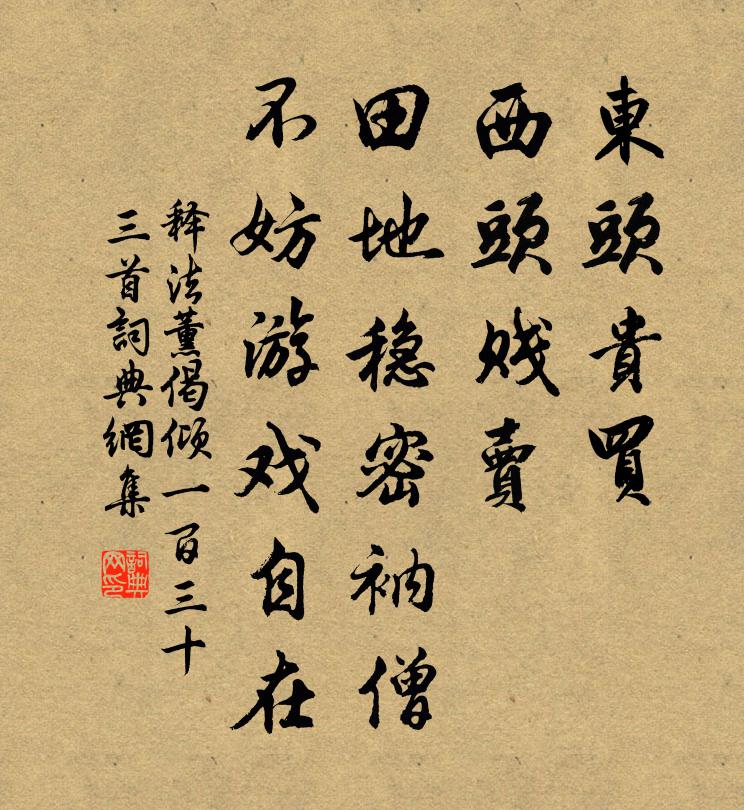 東頭貴買
西頭賤賣
田地稳密衲僧
不妨游戏自在
释法薰偈倾一百三十
三首詞典網集
詞典
网印